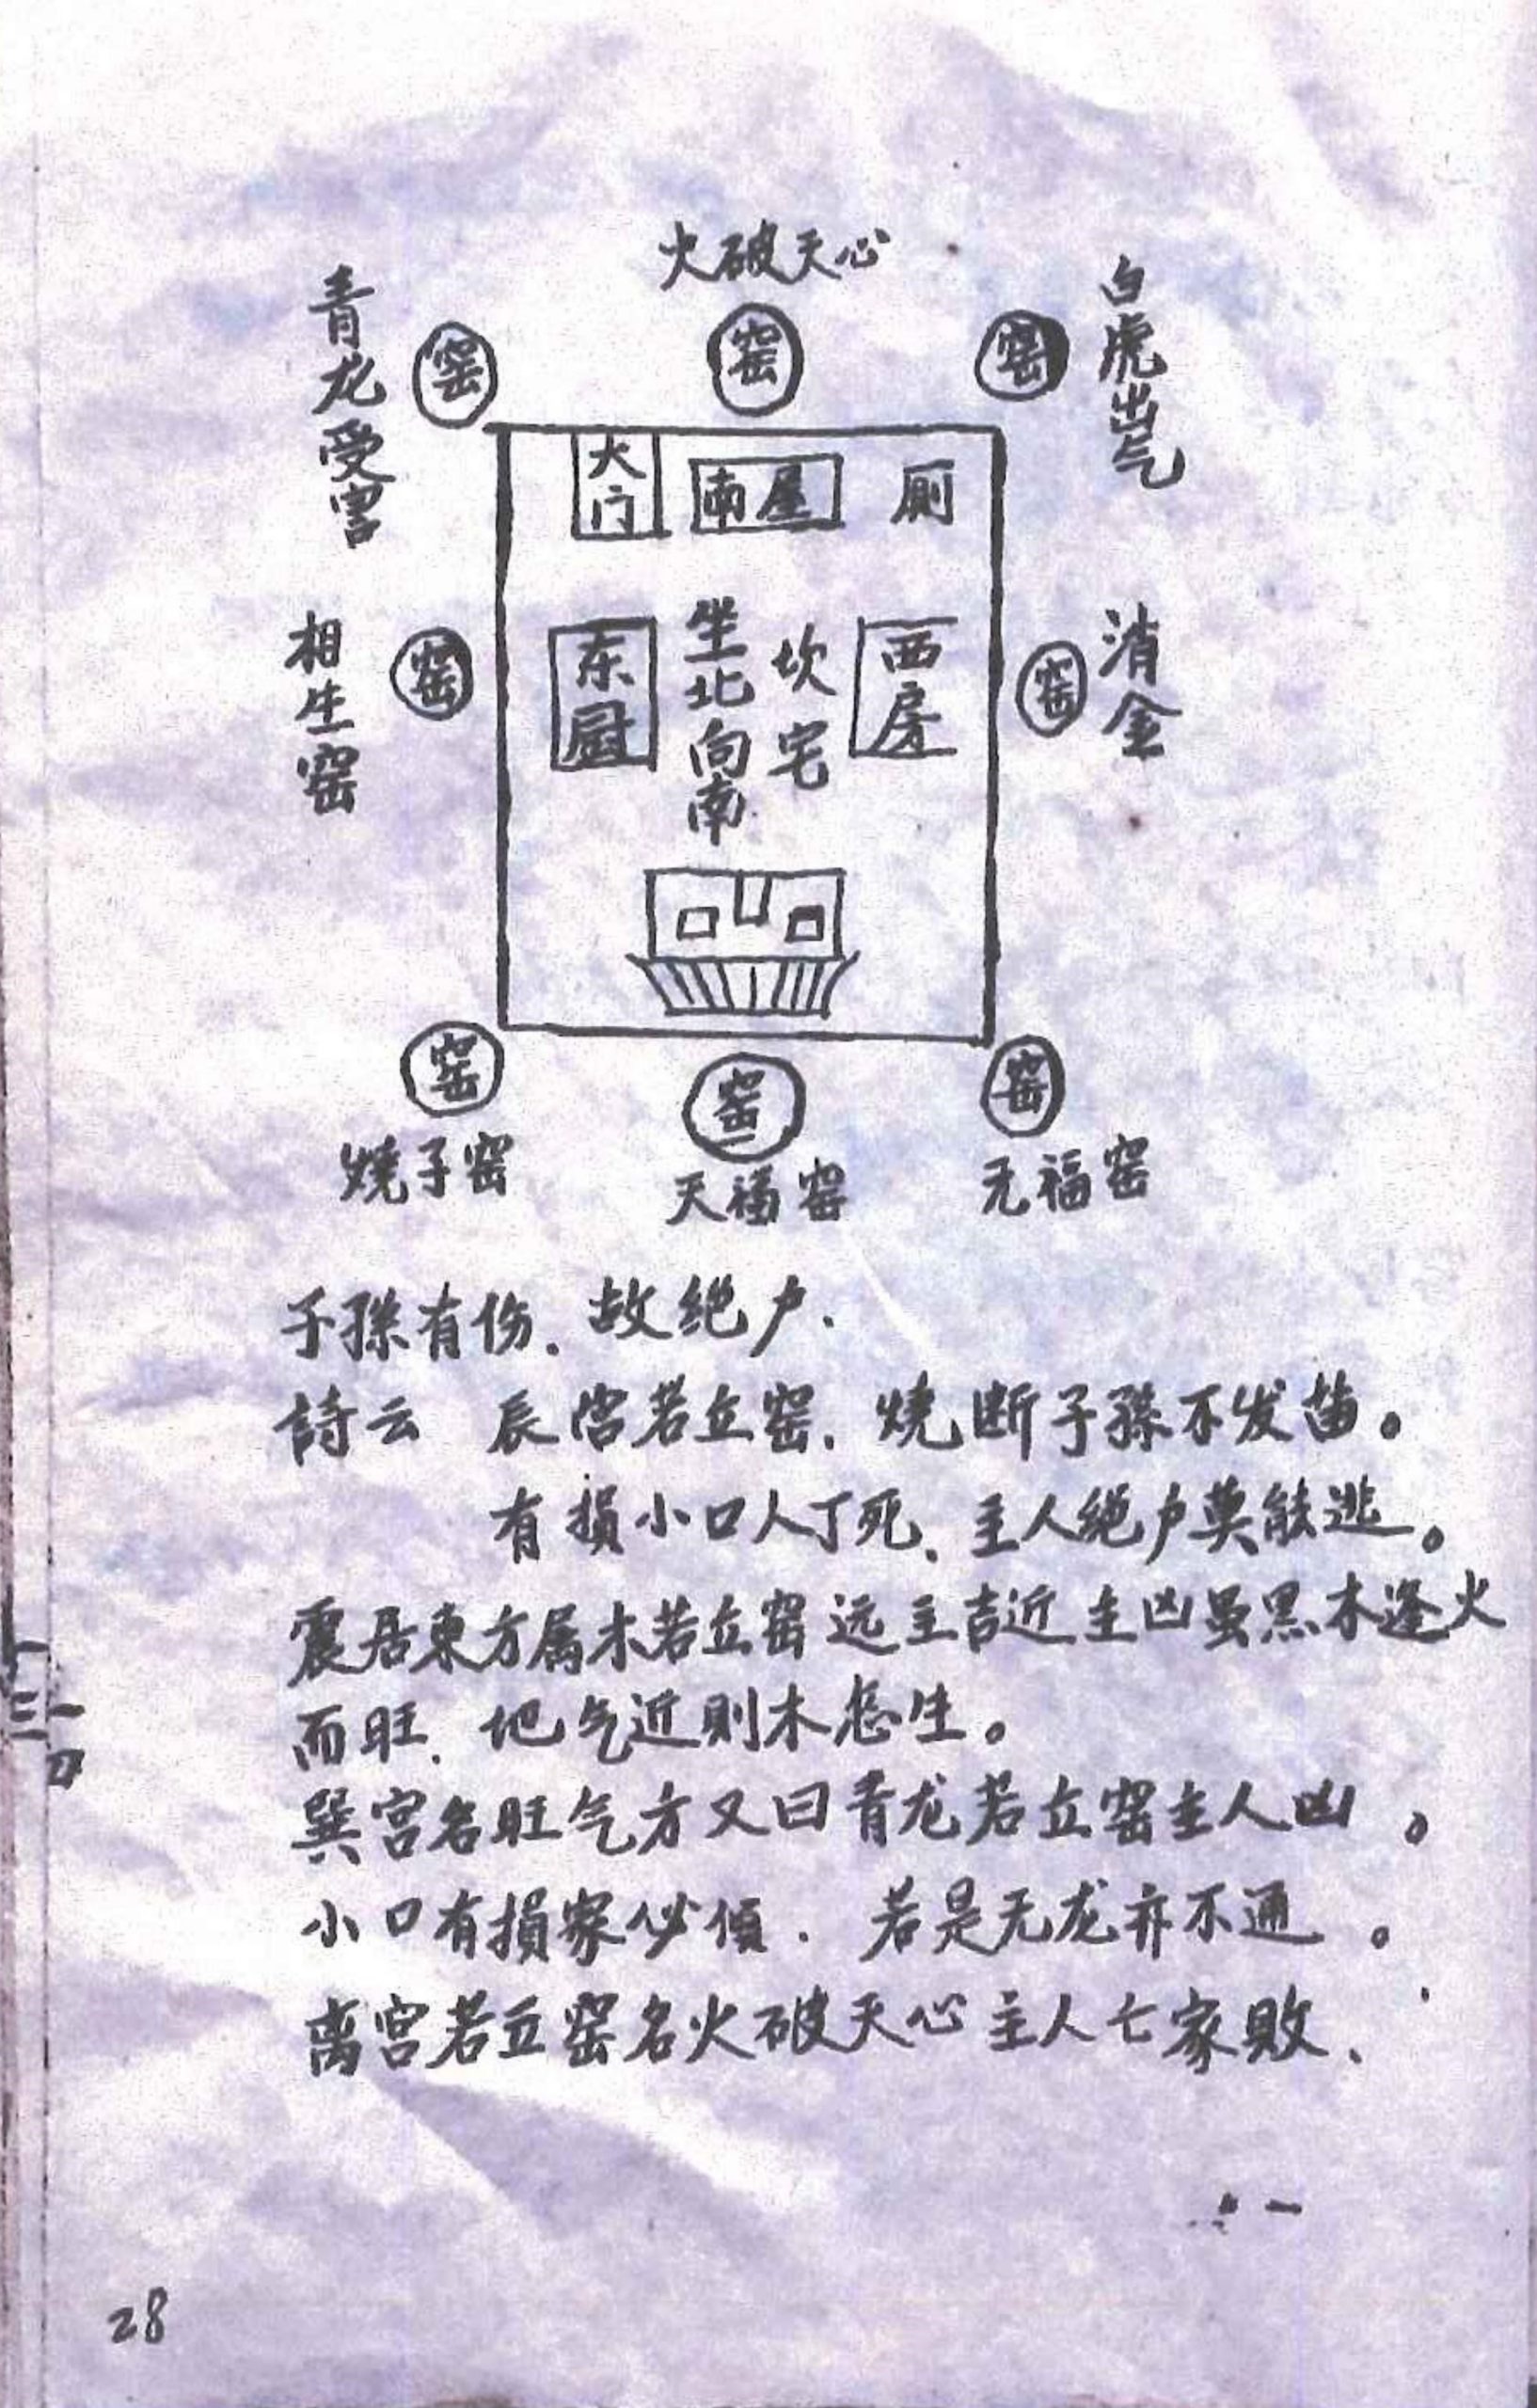 火破天心
青龙受害
白虎出气
窑
窑
窑
大门
南屋
厕
相生窑
窑
东厨
坐北向南
坎宅
西房
窑
消金
窑
窑
窑
烧子窑
天福窑
无福窑
子孫有伤.故绝户.
詩云 辰宫若立窑.烧断子孫不发苗。
有損小口人丁死、主人绝户莫能逃。
震居東方属木若立窑远主吉近主凶虽黑木逢火
而旺.地气近则木怎生。
巽宫名旺气方又曰青龙若立窑主人凶。
小口有損家必傾.若是无龙亦不通。
离宫若立窑名火破天心主人亡家敗、
28